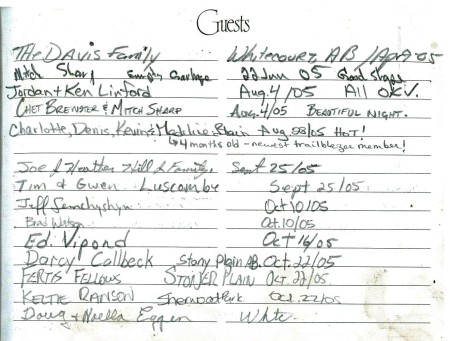 Guests
The Davis Family Whitecourt, AB / Apr '05
Mitch Sharp Empty Garbage 22 Jun 05 Good Shape
Jordan + Ken Linford Aug. 4/05 All OK
Chet Brewster & Mitch Sharp Aug. 4/05 Beautiful Night.
Charlotte, Denis, Kevin & Madeline Blain Aug 28/05 Hot!
↳ 4 months old - newest trailblazer member!
Joe & Heather Hill & Family Sept 25/05
Tim & Gwen Luscombe Sept 25/05
Jeff Semchyshyn Oct 10/05
Brad Oct. 10/05
Ed. Vipond Oct 16/05
Darcy Callbeck Stony Plain AB. Oct. 22/05
Fellows Stoner Plain Oct 22/05
Keltie Ranson Sherwood Park Oct. 22/05
Doug + Noella Eggen White.